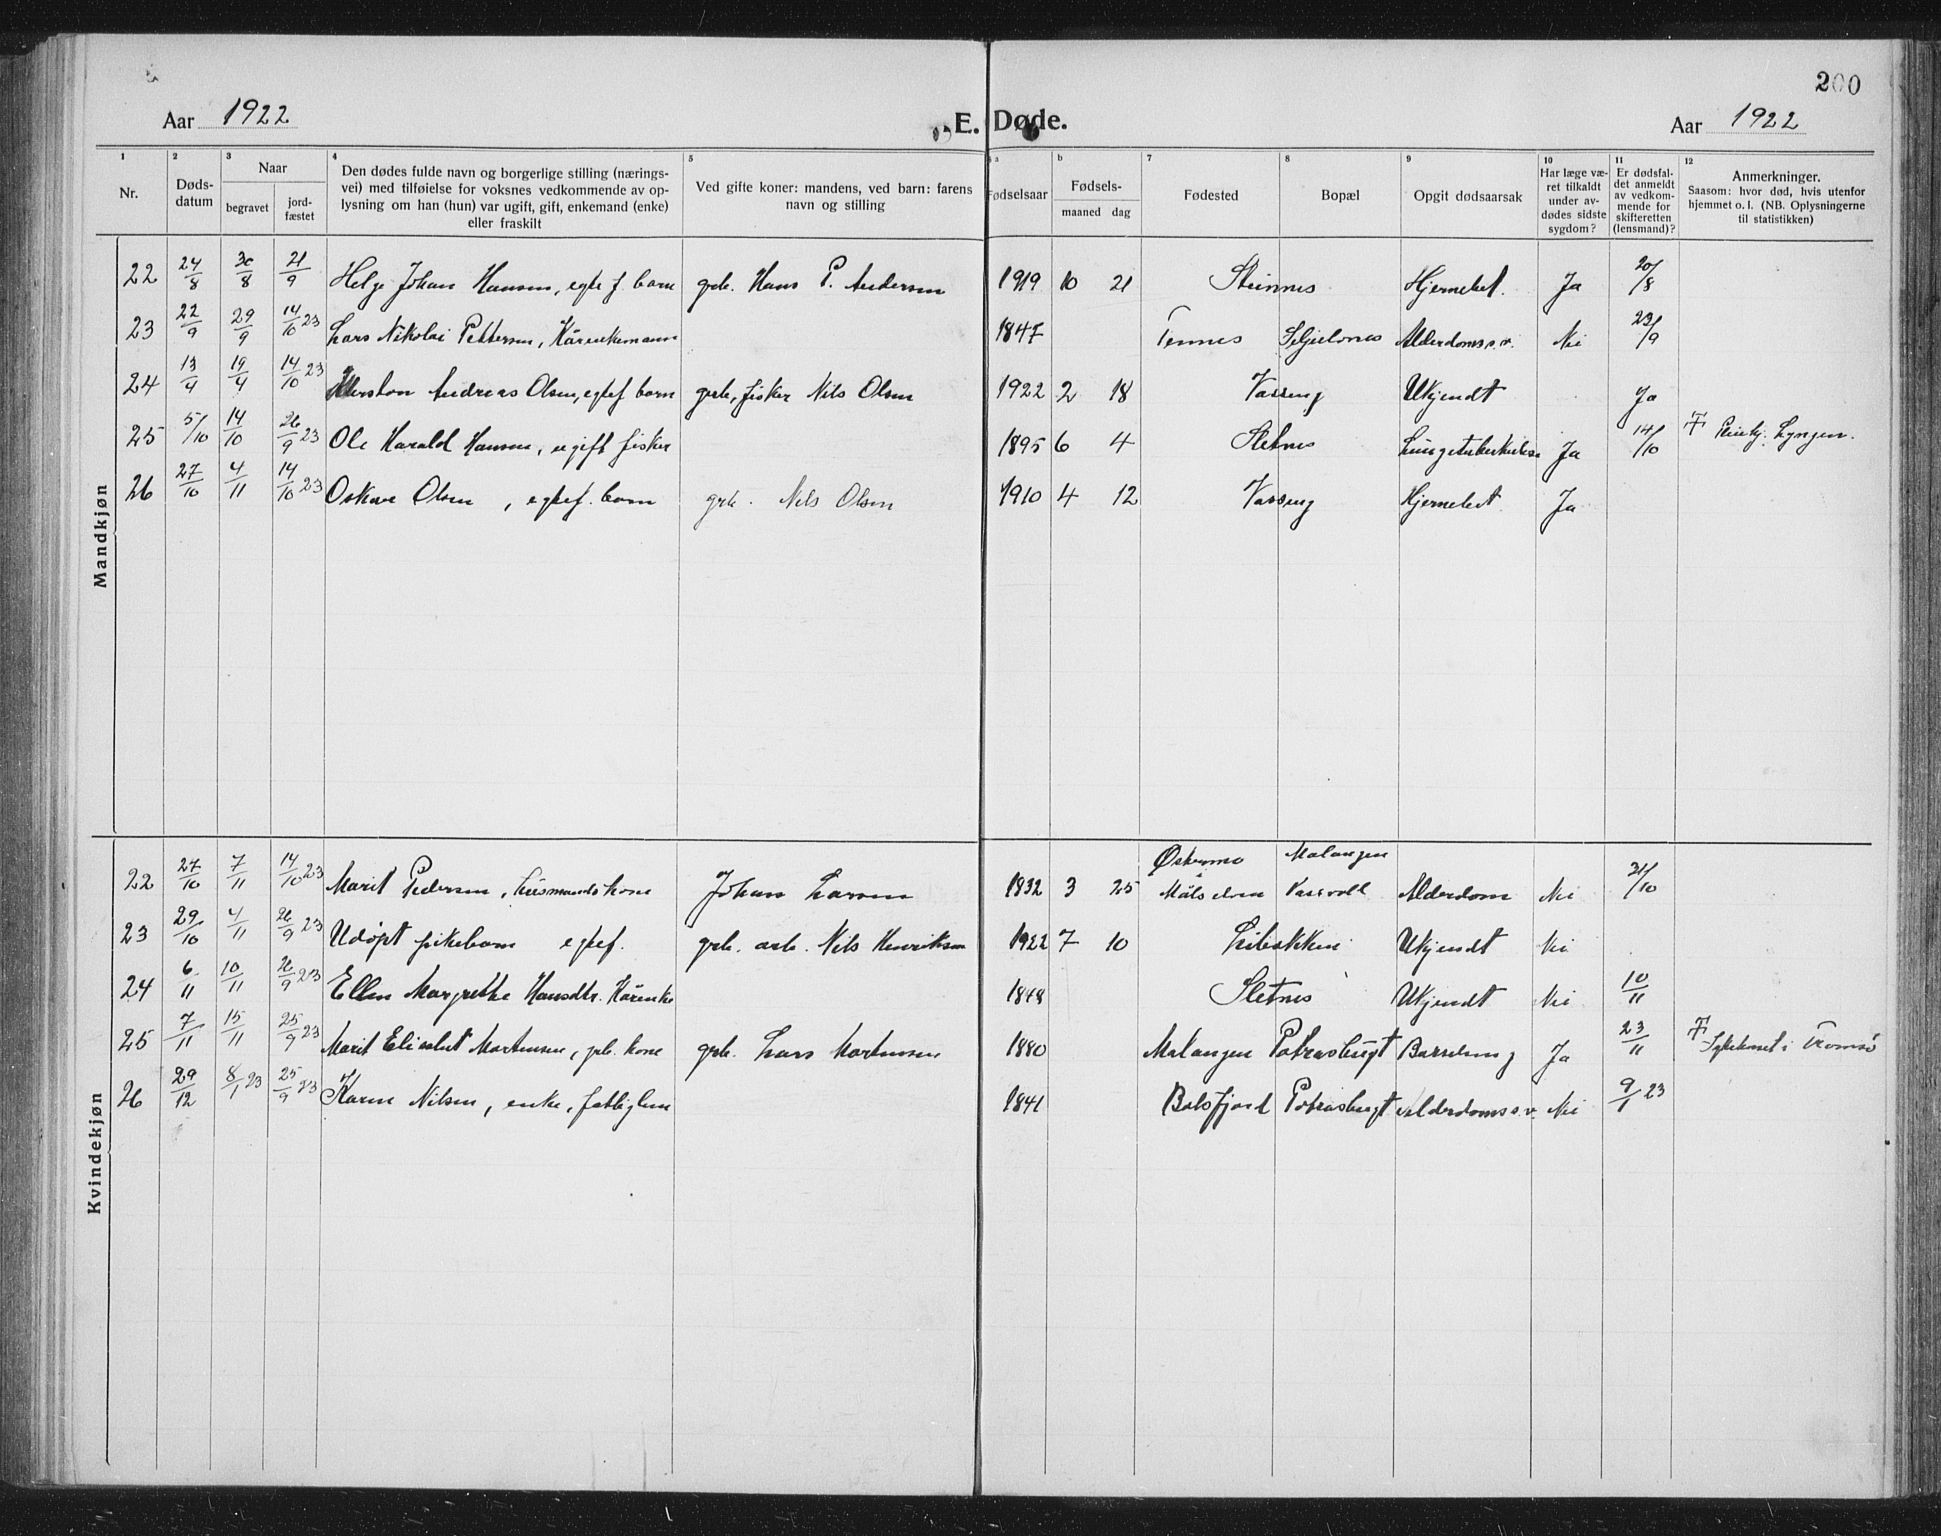 200
Aar 1922 E. Døde. Aar 1922
1 2 3 4 5 6 a b 7 8 9 10 11 12
Nr.
Døds-
datum
Naar
begravet
jord-
fæstet
Den dødes fulde navn og borgerlige stilling (nærings-
vei) med tilføielse for voksnes vedkommende av op-
lysning om han (hun) var ugift, gift, enkemand (enke)
eller fraskilt
Ved gifte koner: mandens, ved barn: farens
navn og stilling
Fødselsaar
Fødsels-
maaned dag
Fødested
Bopæl
Opgit dødsaarsak
Har læge væ-
ret tilkaldt
under av-
dødes sidste
sygdom?
Er dødsfal-
det anmeldt
av vedkom-
mende for
skifteretten
(lensmand)?
Anmerkninger.
Saasom: hvor død, hvis utenfor
hjemmet o. l. (NB. Oplysningerne
til statistikken)
Mandkjøn
22 24/8 30/8 21/9 Helge Johan Hansen, egtef. barn grb. Hans P. Andersen 1919 10 21 Steinnes Hjernebet. Ja 20/8
23 22/9 29/9 14/10 23 Lars Nikolai Pettersen, Kårenkemann 1847 Tennes Alderdomss.v. Nei 23/9
24 13/9 19/9 14/10 23 Andreas Olsen, egtef barn grb, fisker Nils Olsen 1922 2 18 Vasseng Ukjendt Ja
25 5/10 14/10 26/9 23 Ole Harald Hansen, ugift fisker 1895 6 4 Sletnes Lungetuberkulose Ja 14/10 Lyngen.
26 27/10 4/11 14/10 23 Oskar Olsen, egtef. barn grb. Nils Olsen 1910 4 12 Vasseng Hjernebet Ja
Kvindekjøn
22 27/10 7/11 14/10 23 Marit Pedersen, husmandskone Johan Larsen 1832 3 25 Målselven Malangen Alderdom Nei 31/10
23 29/10 4/11 26/9 23 Udøpt pikebarn egtef. grb. arb. Nils Henriksen 1922 7 10 Ukjendt Nei
24 6/11 10/11 26/9 23 Ellen Margrethe Hansdtr. Kårenke 1848 Sletnes Ukjendt Nei 10/11
25 7/11 15/11 25/9 23 Marit Eliesbet Mortensen, grb. kone grb. Lars Mortensen 1880 Malangen Potrasbugt Barseleng Ja 23/11 Sykehuset i Tromsø
26 29/12 8/1 23 25/9 23 Karen Nilsen, enke, fattiglem 1841 Balsfjord Potrasbugt Alderdomss.v. Nei 9/1 23